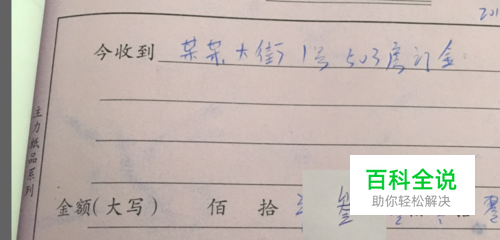 201
今收到 某某大街1号503房订金
主力纸品系列
金额(大写) 佰 拾
百科全说
助你轻松解决